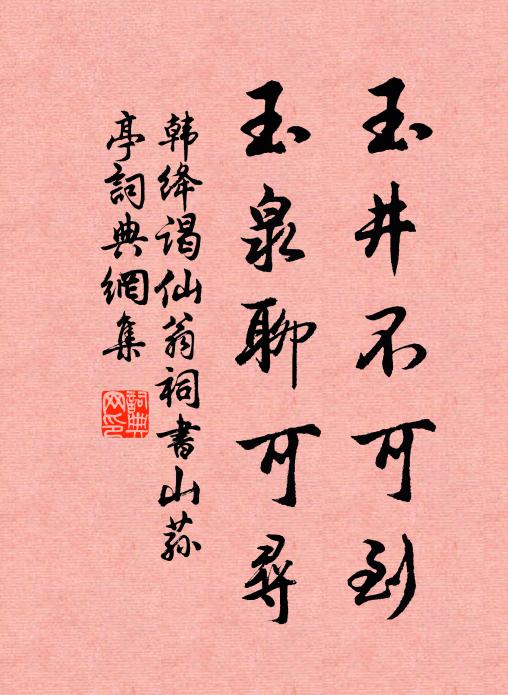 玉井不可到
玉泉聊可尋
韩绛谒仙翁祠書山荪
亭詞典網集
詞典网印